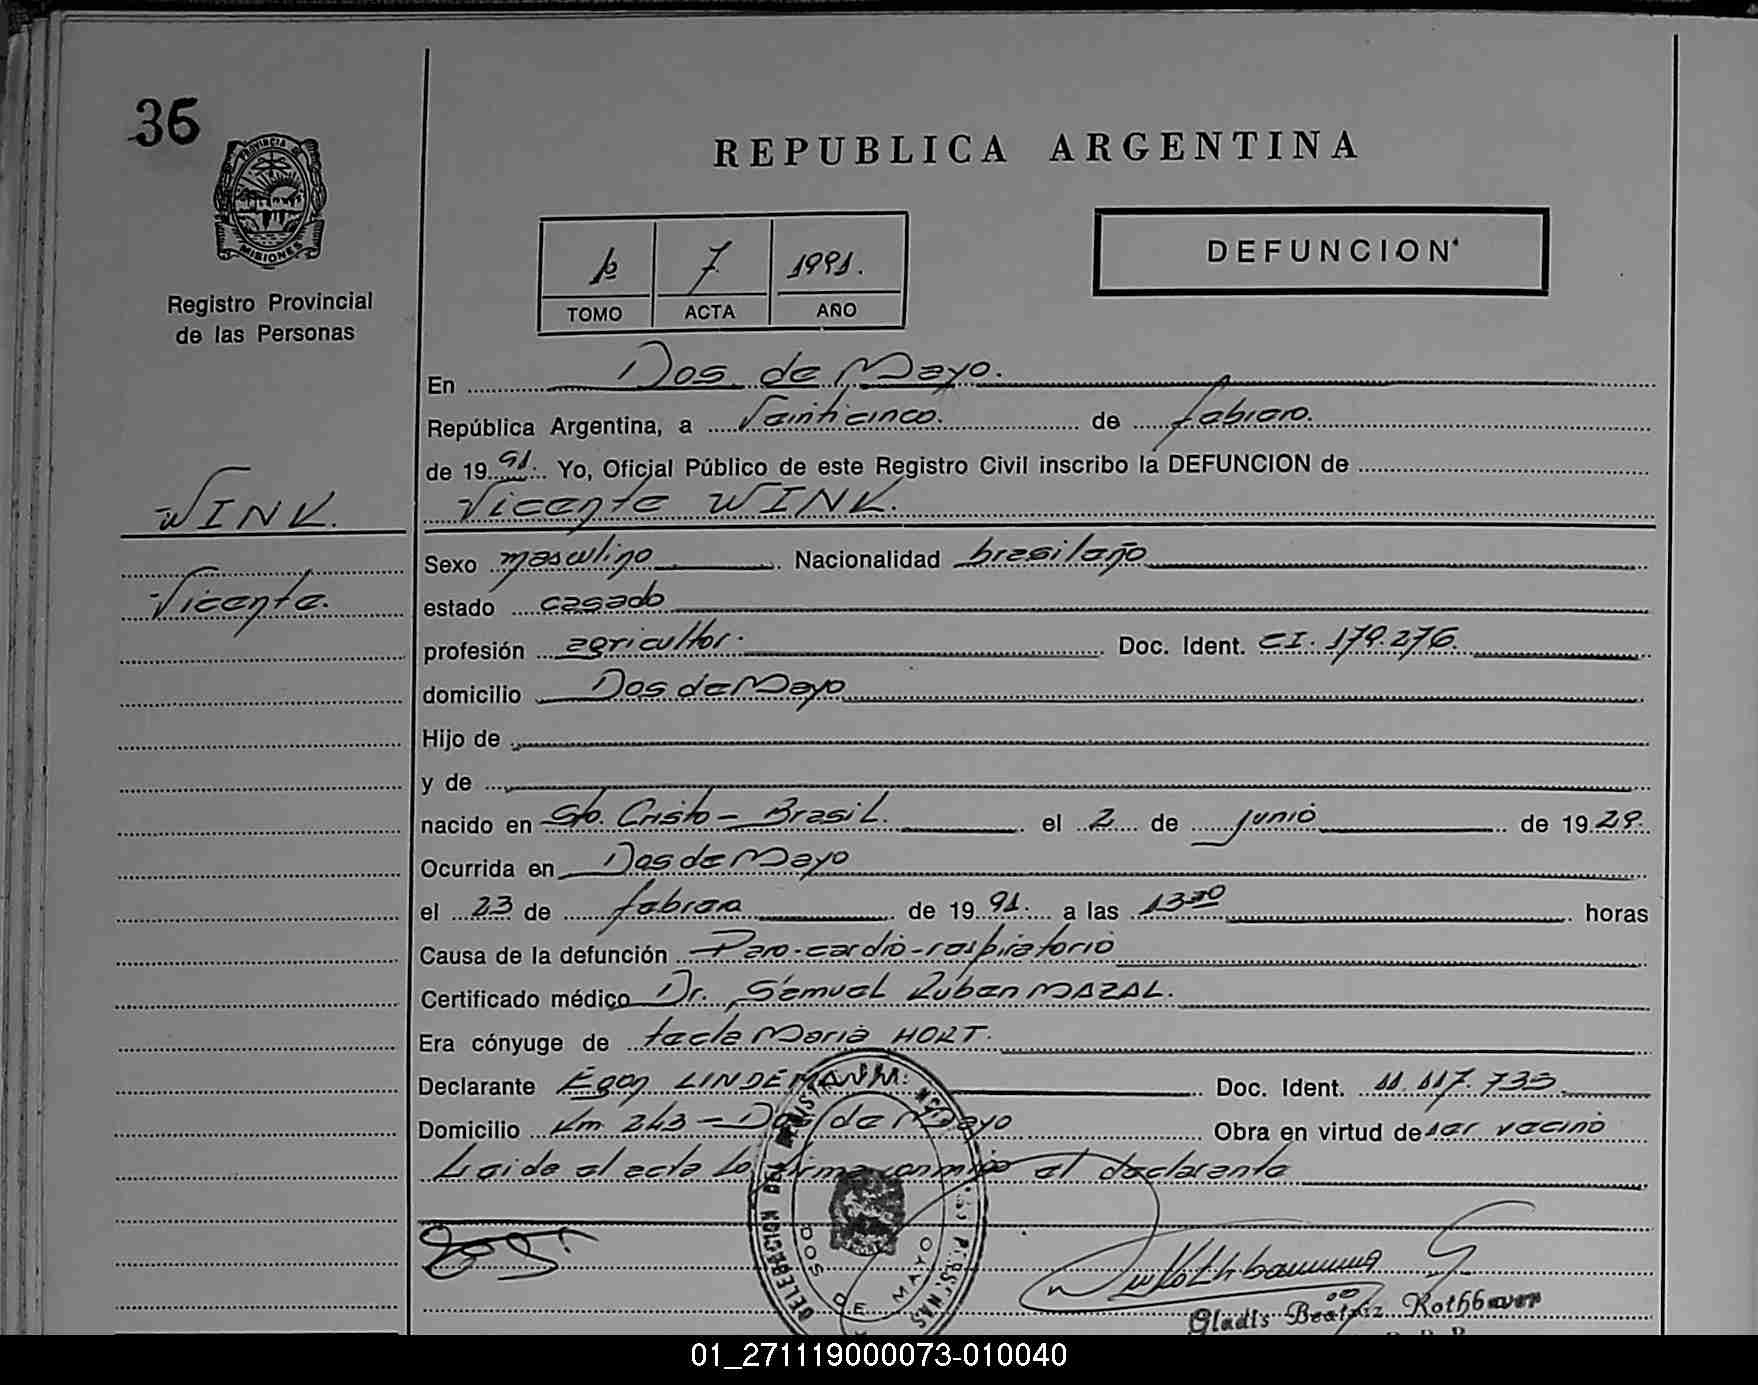 36
PROVINCIA DE
MISIONES
Registro Provincial
de las Personas
REPUBLICA ARGENTINA
1º 7 1991.
TOMO ACTA AÑO
DEFUNCION
En Dos de Mayo.
República Argentina, a Veinticinco. de febrero.
de 19 91. Yo, Oficial Público de este Registro Civil inscribo la DEFUNCION de
WINK. Vicente WINK.
Sexo masculino Nacionalidad brasileño
Vicente. estado casado
profesión agricultor. Doc. Ident. CI. 179.276.
domicilio Dos de Mayo
Hijo de
y de
nacido en Sto. Cristo - Brasil. el 2 de junio de 19 29.
Ocurrida en Dos de Mayo
el 23 de febrero de 19 91. a las 13:30 horas
Causa de la defunción Paro-cardio-respiratorio
Certificado médico Dr. Samuel Ruben MAZAL.
Era cónyuge de tecla Maria HORT.
Declarante Egon LINDEMANN. Doc. Ident. 11.117.733
Domicilio Km. 243 - Dos de Mayo Obra en virtud de ser vecino
Leida el acta La firma conmigo el declarante
DOS DE MAYO
Gladis Beatriz Rothbauer
01_271119000073-010040